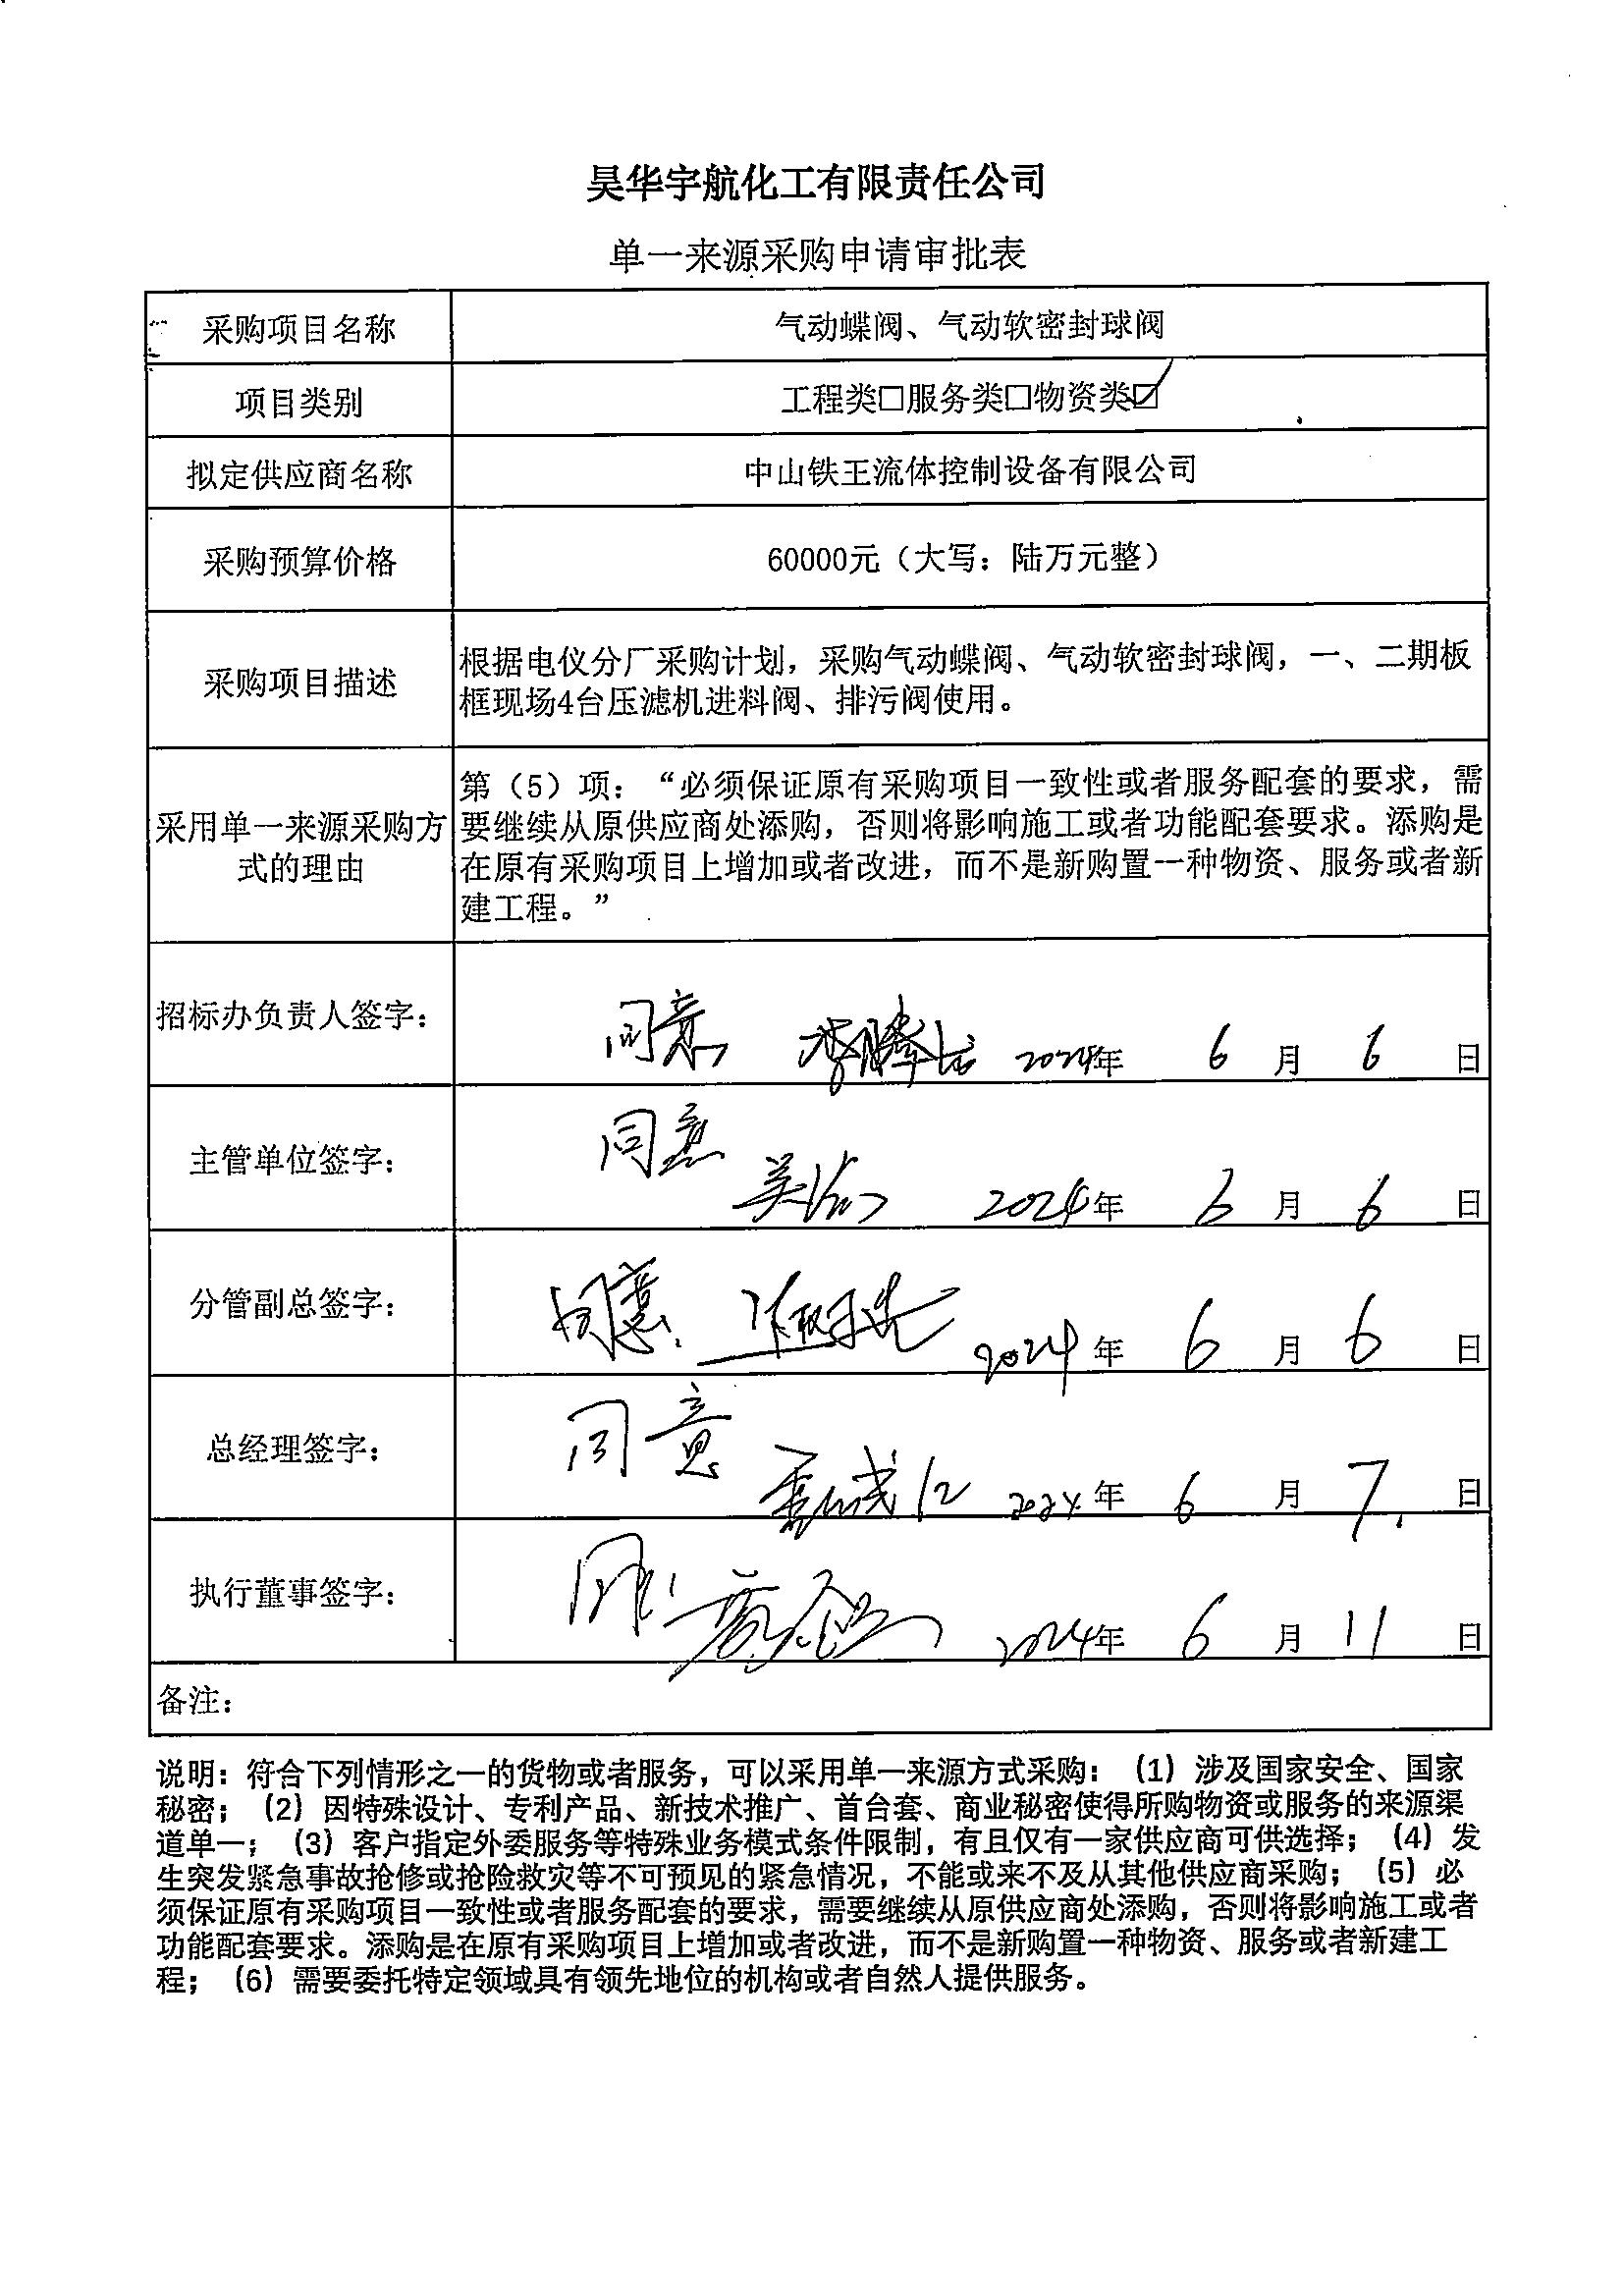 昊华宇航化工有限责任公司
单一来源采购申请审批表
采购项目名称 气动蝶阀、气动软密封球阀
项目类别 工程类□服务类□物资类☑
拟定供应商名称 中山铁王流体控制设备有限公司
采购预算价格 60000元（大写：陆万元整）
采购项目描述 根据电仪分厂采购计划，采购气动蝶阀、气动软密封球阀，一、二期板
框现场4台压滤机进料阀、排污阀使用。
采用单一来源采购方
式的理由
第（5）项：“必须保证原有采购项目一致性或者服务配套的要求，需
要继续从原供应商处添购，否则将影响施工或者功能配套要求。添购是
在原有采购项目上增加或者改进，而不是新购置一种物资、服务或者新
建工程。”
招标办负责人签字： 同意 2024年 6 月 6 日
主管单位签字： 同意 2024年 6 月 6 日
分管副总签字： 同意. 2024年 6 月 6 日
总经理签字： 同意 2024年 6 月 7 日
执行董事签字： 同意 2024年 6 月 11 日
备注：
说明：符合下列情形之一的货物或者服务，可以采用单一来源方式采购：（1）涉及国家安全、国家
秘密；（2）因特殊设计、专利产品、新技术推广、首台套、商业秘密使得所购物资或服务的来源渠
道单一；（3）客户指定外委服务等特殊业务模式条件限制，有且仅有一家供应商可供选择；（4）发
生突发紧急事故抢修或抢险救灾等不可预见的紧急情况，不能或来不及从其他供应商采购；（5）必
须保证原有采购项目一致性或者服务配套的要求，需要继续从原供应商处添购，否则将影响施工或者
功能配套要求。添购是在原有采购项目上增加或者改进，而不是新购置一种物资、服务或者新建工
程；（6）需要委托特定领域具有领先地位的机构或者自然人提供服务。